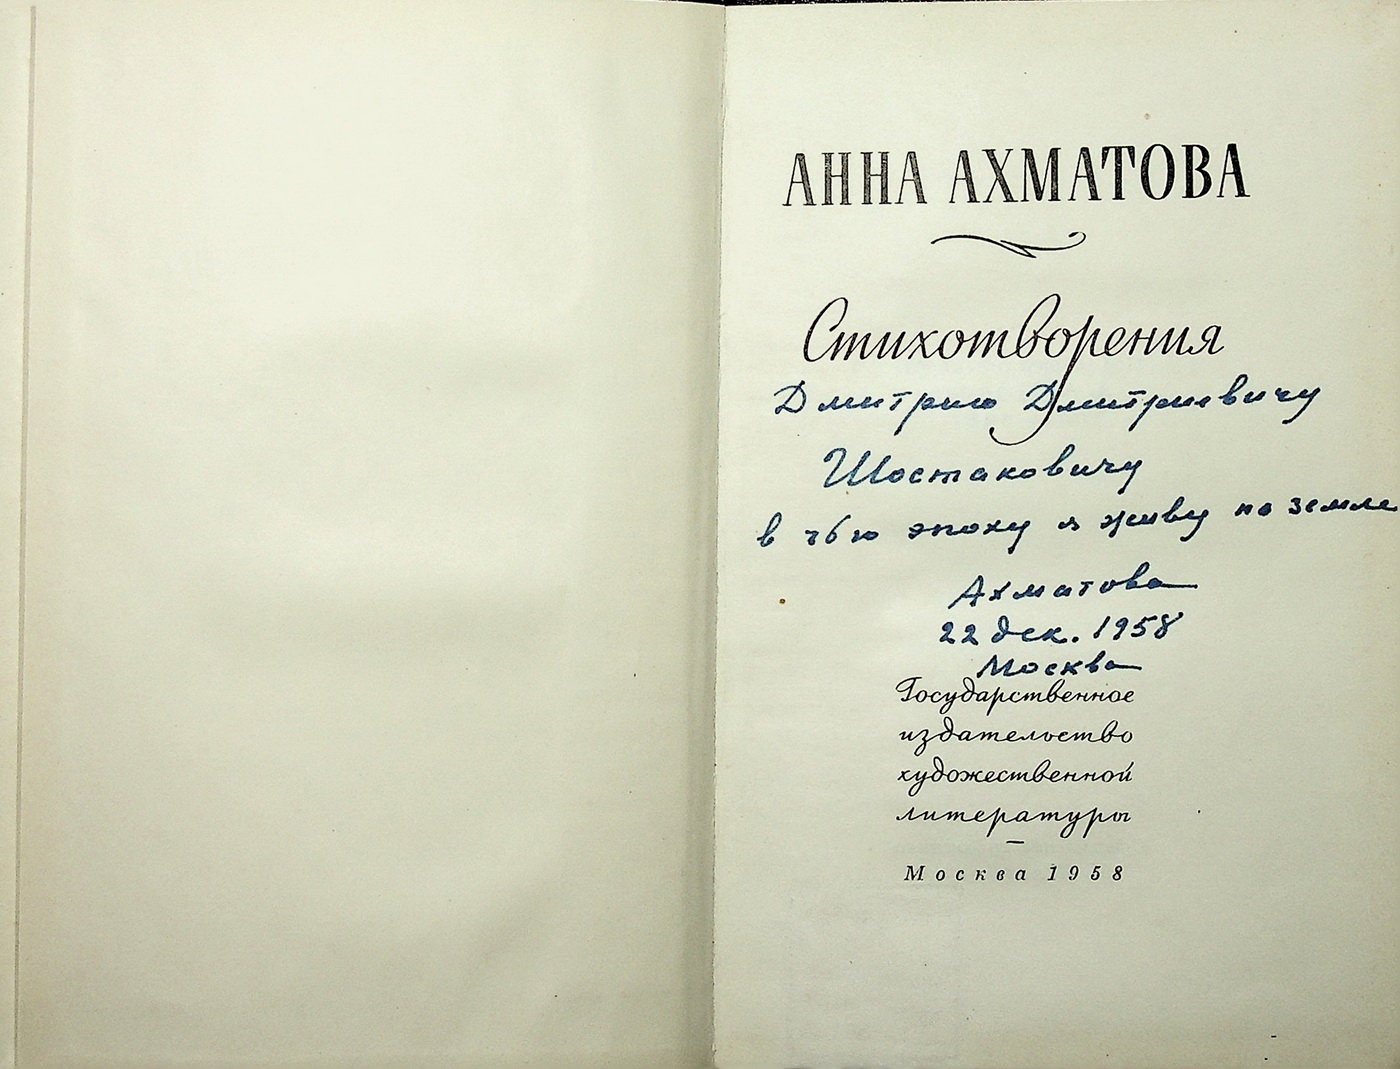 АННА АХМАТОВА
Стихотворения
Дмитрию Дмитриевичу
Шостаковичу
в чью эпоху я живу на земле
Ахматова
22 дек. 1958
Москва
Государственное
издательство
художественной
литературы
Москва 1958